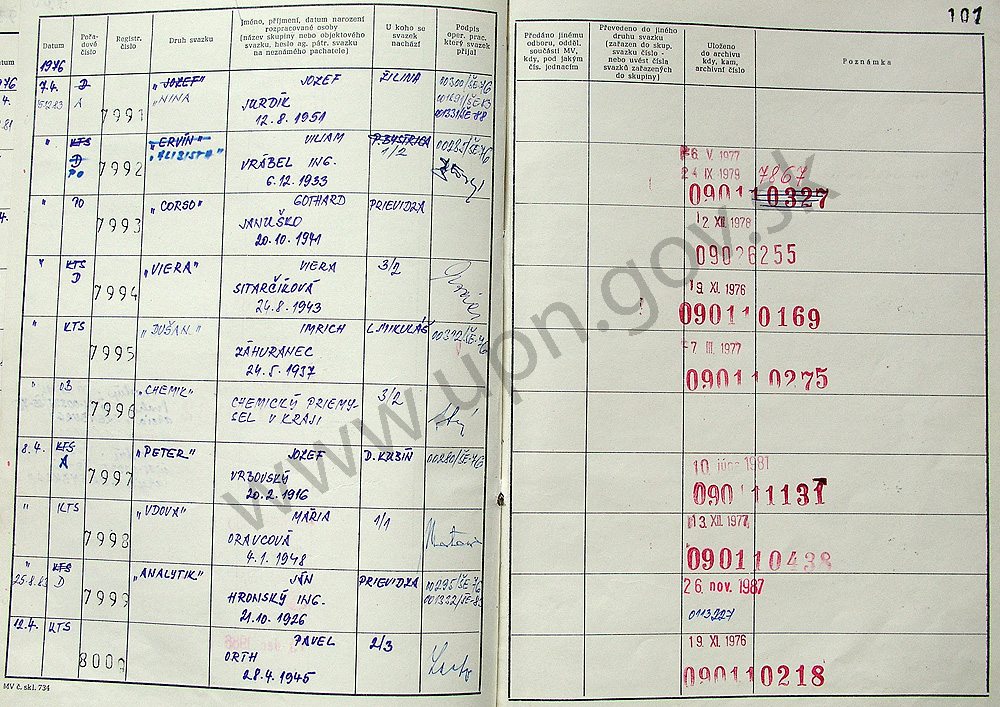 101
Datum
Pořa-
dové
číslo
Registr.
číslo
Druh svazku
Jméno, příjmení, datum narození
rozpracované osoby
(název skupiny nebo objektového
svazku, heslo ag. pátr. svazku
na neznámého pachatele)
U koho se
svazek
nachází
Podpis
oper. prac.
který svazek
přijal
Předáno jinému
odboru, odděl.
součásti MV,
kdy, pod jakým
čís. jednacím
Převedeno do jiného
druhu svazku
(zařazen do skup.
svazku číslo -
nebo uvést čísla
svazků zařazených
do skupiny)
Uloženo
do archivu
kdy, kam,
archivní číslo
Poznámka
1976
7.4. D 7991 "JOZEF" JOZEF ŽILINA 00300/ŠE-76
A "NINA" JURDÍK
12.8.1951
" KTS 7992 "ERVÍN" VILIAM P.BYSTRICA 00285/ŠE-76
D 1/2
PO VRÁBEL ING.
6.12.1933
6. V. 1977
24 IX 1979 7867
090110327
" PO 7993 "CORSO" GOTHARD PRIEVIDZA
JANUŠKO
20.10.1941
12. XII. 1978
09026255
" KTS 7994 "VIERA" VIERA 3/2
D SITARČÍKOVÁ
24.8.1943
19. XI. 1976
090110169
" KTS 7995 "DUŠAN" IMRICH L.MIKULÁŠ 00312/ŠE-76
ZÁHURANEC
24.5.1937
7. III. 1977
090110275
" OB 7996 "CHEMIK" 3/2
CHEMICKÝ PRIEMY-
SEL V KRAJI
8.4. KTS 7997 "PETER" JOZEF D.KUBÍN 00280/ŠE-76
A VRBOVSKÝ
20.2.1916
10. júna 1981
090111131
" KTS 7998 "VDOVA" MÁRIA 1/1
ORAVCOVÁ
4.1.1948
13. XII. 1977
090110438
" KTS 7999 "ANALYTIK" JÁN PRIEVIDZA 00295/ŠE-76
25.8.83 D HRONSKÝ ING. 001332/ŠE-83
21.10.1926
26. nov. 1987
0113227
12.4. KTS 8000 PAVEL 2/3
ORTH
28.4.1945
19. XI. 1976
090110218
MV č. skl. 734
www.upn.gov.sk